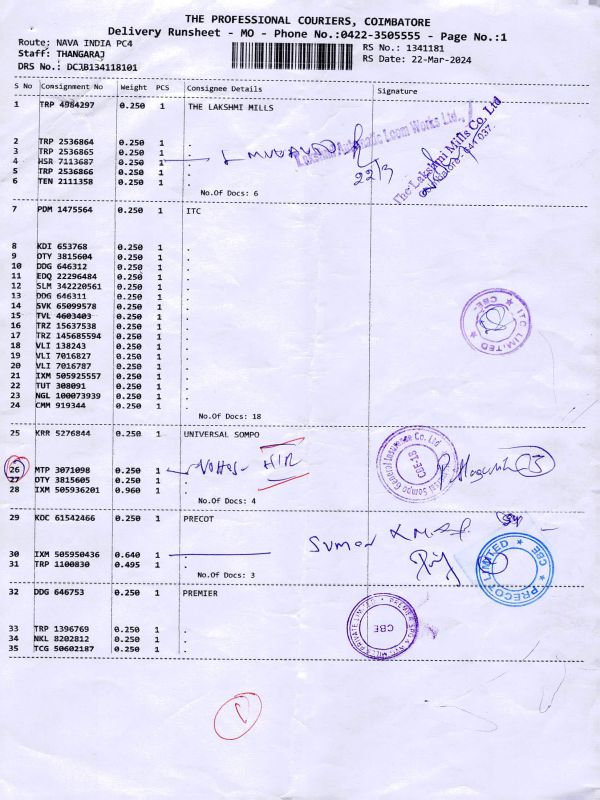 THE PROFESSIONAL COURIERS, COIMBATORE
Delivery Runsheet - MO - Phone No.:0422-3505555 - Page No.:1
Route: NAVA INDIA PC4
RS No.: 1341181
Staff: THANGARAJ
RS Date: 22-Mar-2024
DRS No.: DCJB134118101
S No Consignment No Weight PCS Consignee Details Signature
1 TRP 4984297 0.250 1 THE LAKSHMI MILLS
Lakshmi Automatic Loom Works Ltd.,
The Lakshmi Mills Co. Ltd
2 TRP 2536864 0.250 1 .
3 TRP 2536865 0.250 1 .
4 HSR 7113687 0.250 1
22/3
5 TRP 2536866 0.250 1 .
6 TEN 2111358 0.250 1 .
No.Of Docs: 6
7 PDM 1475564 0.250 1 ITC
8 KDI 653768 0.250 1 .
9 OTY 3815604 0.250 1 .
10 DDG 646312 0.250 1 .
11 EDQ 22296484 0.250 1 .
12 SLM 342220561 0.250 1 .
13 DDG 646311 0.250 1 .
14 SVK 65099578 0.250 1 .
15 TVL 4603403 0.250 1 .
16 TRZ 15637538 0.250 1 .
17 TRZ 145685594 0.250 1 .
18 VLI 138243 0.250 1 .
19 VLI 7016827 0.250 1 .
20 VLI 7016787 0.250 1 .
21 IXM 505925557 0.250 1 .
22 TUT 308091 0.250 1 .
23 NGL 100073939 0.250 1 .
24 CMM 919344 0.250 1 .
ITC LIMITED
CBE-
No.Of Docs: 18
25 KRR 5276844 0.250 1 UNIVERSAL SOMPO
Sompo General Insurance Co. Ltd
CBE-18
26 MTP 3071098 0.250 1
27 OTY 3815605 0.250 1 .
28 IXM 505936201 0.960 1 .
No.Of Docs: 4
29 KOC 61542466 0.250 1 PRECOT
30 IXM 505950436 0.640 1
31 TRP 1100830 0.495 1 .
No.Of Docs: 3
PRECOT LIMITED
CBE
32 DDG 646753 0.250 1 PREMIER
CBE
33 TRP 1396769 0.250 1 .
34 NKL 8202812 0.250 1 .
35 TCG 50602187 0.250 1 .